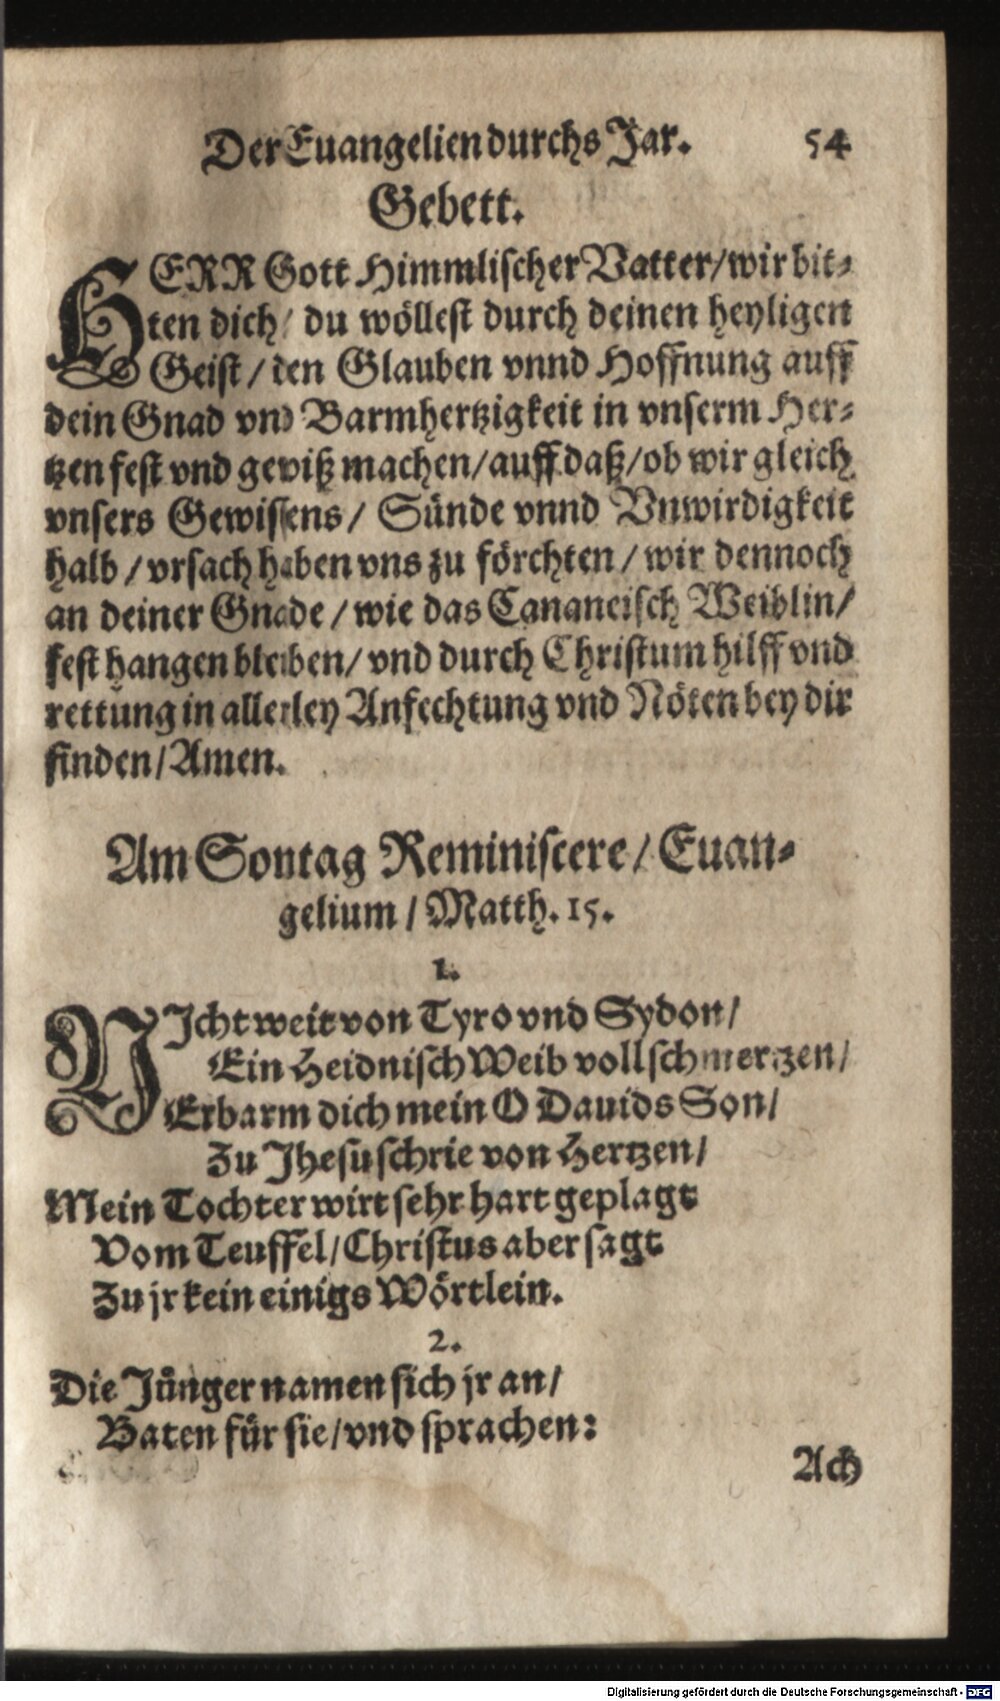 Der Euangelien durchs Jar. 54
Gebett.
HERR Gott Himmlischer Vatter/ wir bit-
ten dich/ du wöllest durch deinen heyligen
Geist/ den Glauben vnnd Hoffnung auff
dein Gnad vnd Barmhertzigkeit in vnserm Her-
tzen fest vnd gewiß machen/ auff daß/ ob wir gleich
vnsers Gewissens/ Sünde vnnd Vnwirdigkeit
halb/ vrsach haben vns zu förchten/ wir dennoch
an deiner Gnade/ wie das Cananeisch Weiblin/
fest hangen bleiben/ vnd durch Christum hilff vnd
rettung in allerley Anfechtung vnd Nöten bey dir
finden/ Amen.
Am Sontag Reminiscere/ Euan-
gelium/ Matth. 15.
1.
NIcht weit von Tyro vnd Sydon/
Ein Heidnisch Weib voll schmertzen/
Erbarm dich mein O Dauids Son/
Zu Jhesu schrie von Hertzen/
Mein Tochter wirt sehr hart geplagt
Vom Teuffel/ Christus aber sagt
Zu jr kein einigs Wörtlein.
2.
Die Jünger namen sich jr an/
Baten für sie/ vnd sprachen:
Ach
Digitalisierung gefördert durch die Deutsche Forschungsgemeinschaft - DFG